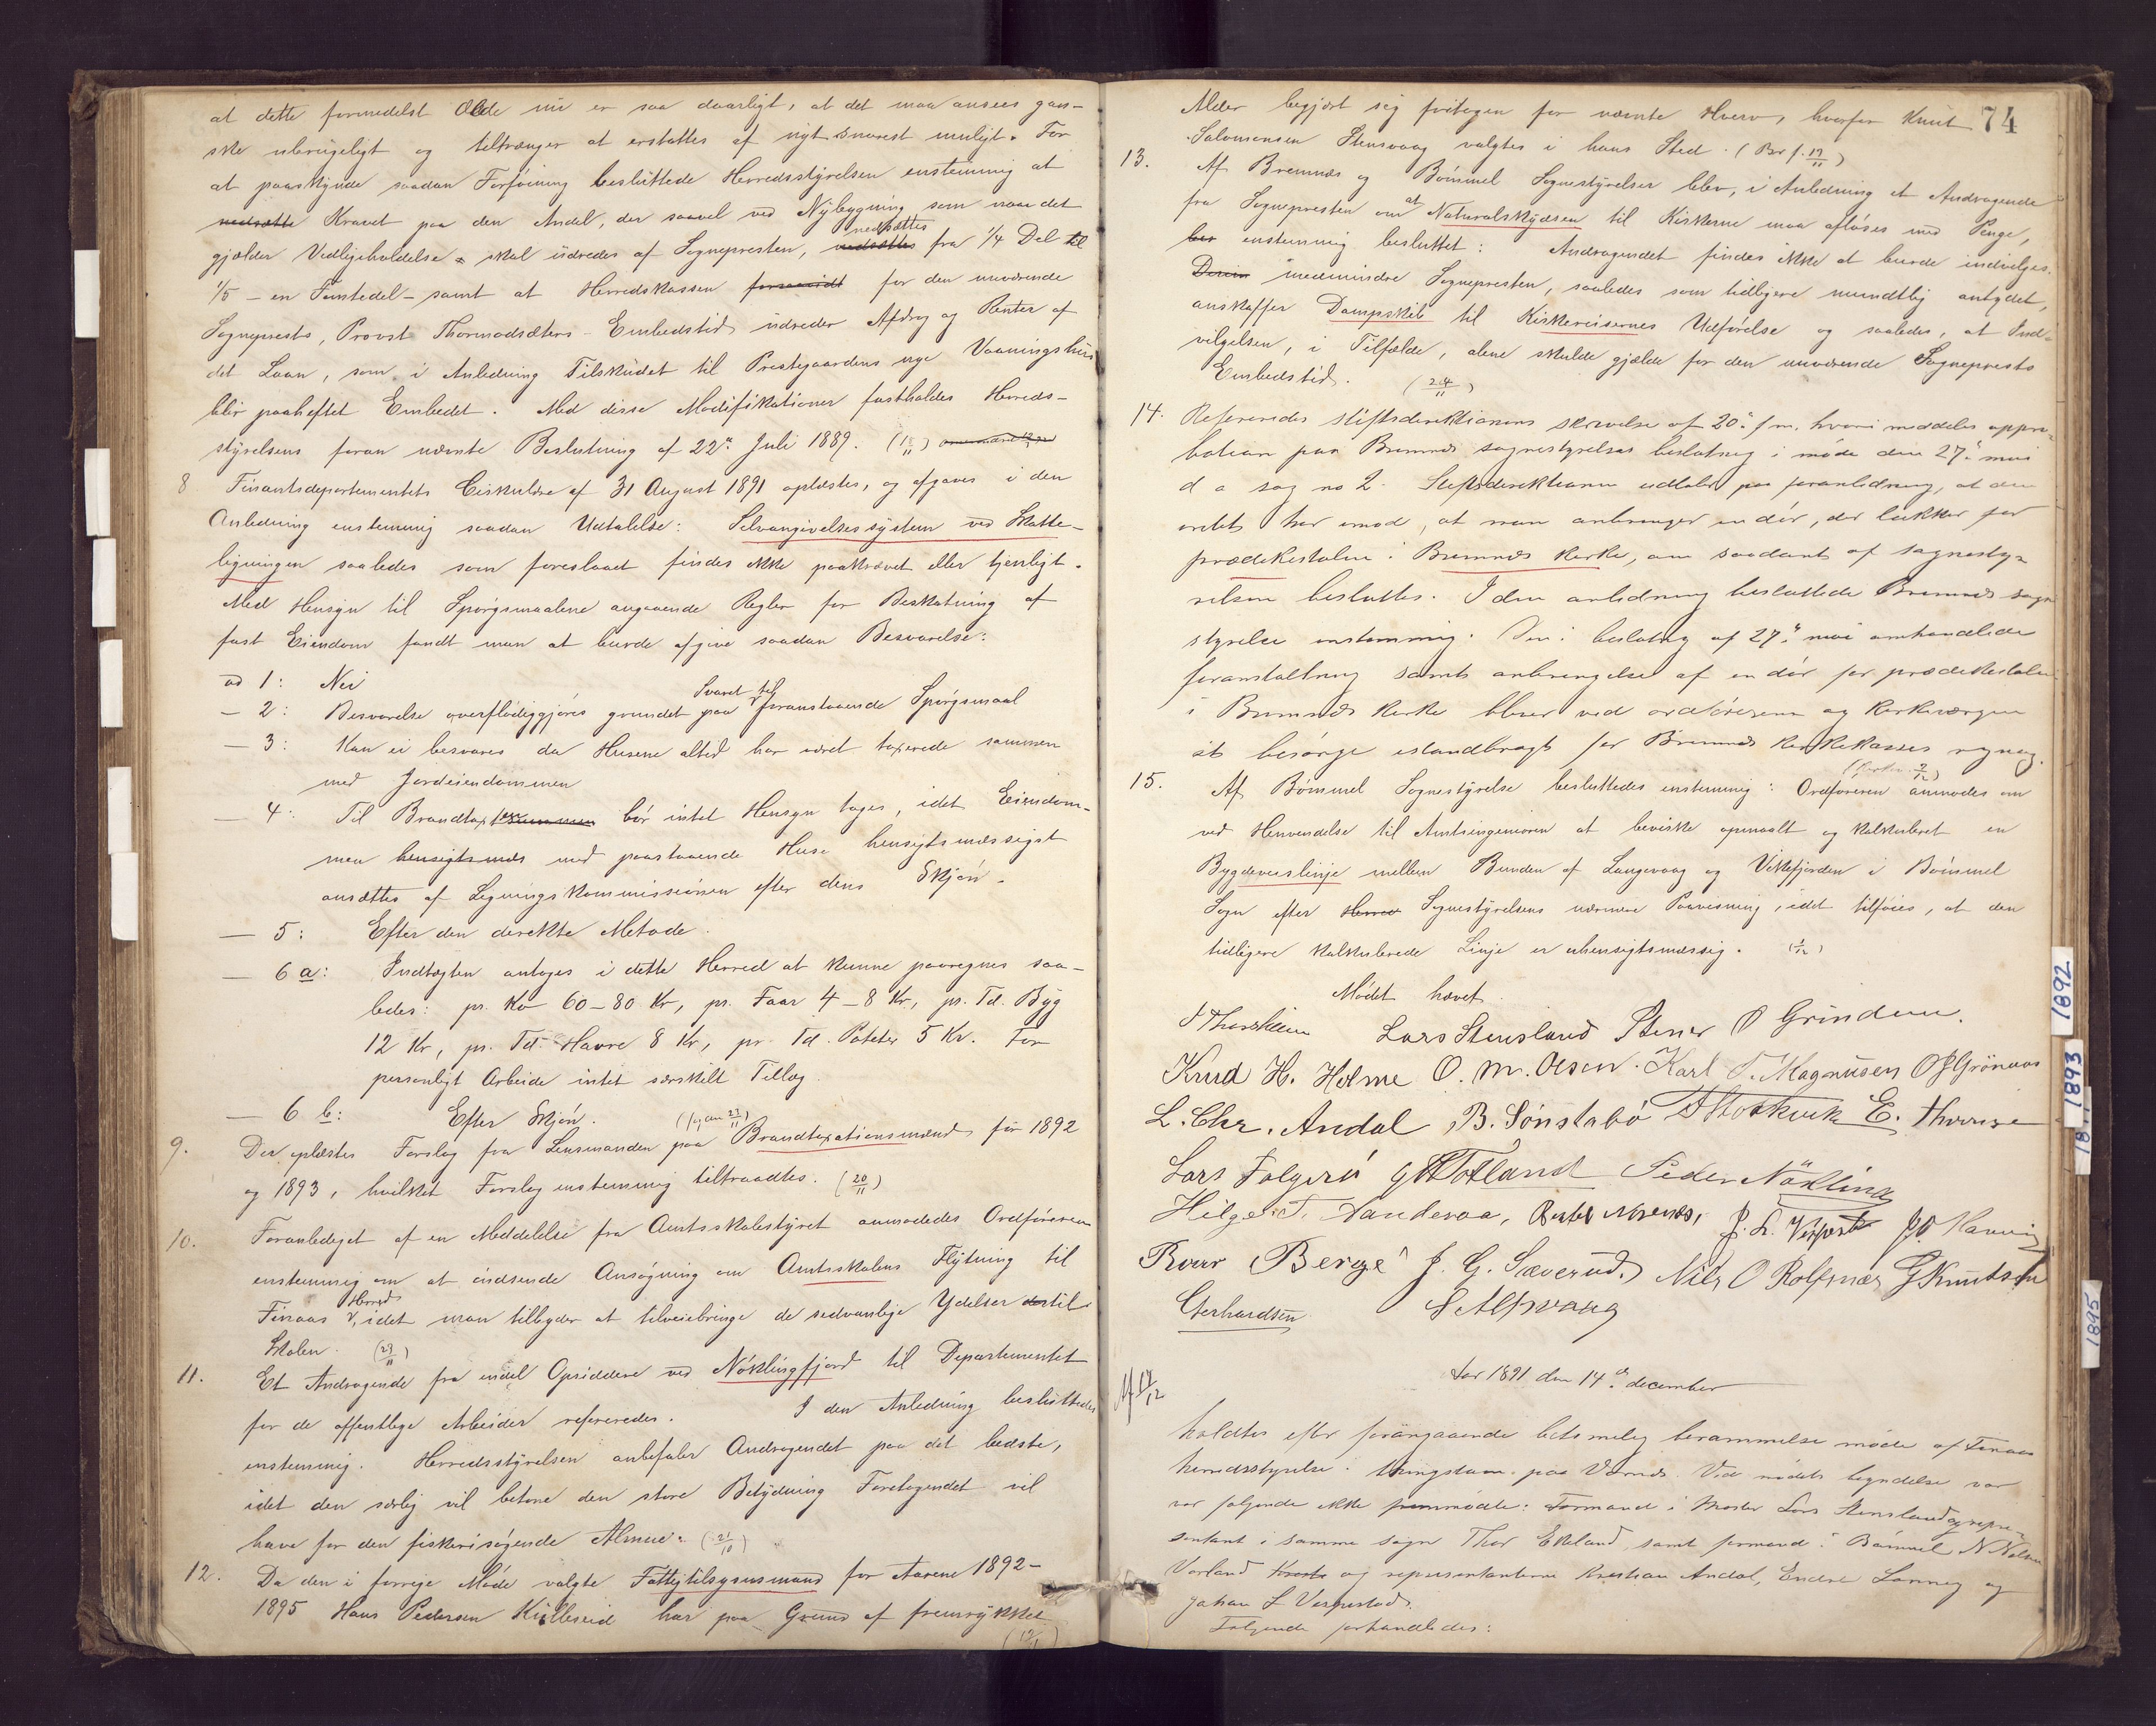 at dette formedelst Ælde nu er saa daarligt, at det maa ansees gan-
ske ubrugeligt og tiltrænger at erstattes af nyt snarest muligt. For
at paaskynde saadan Forføining besluttede Herredsstyrelsen enstemmig at
nedsætte Kravet paa den Andel, der saavel ved Nybygning som naar det
gjælder Vedligeholdelse skal udredes af Sognepresten, nedsættes fra 1/4 Del til
1/5 - en Femtedel - samt at Herredskassen for den nuværende
Sogneprests, Provst Thormodsæters Embedstid udreder Afdrag og Renter af
det Laan, som i Anledning Tilskudet til Prestegaardens nye Vaaningshus
blir paaheftet Embedet. Med disse Modifikationer fastholdes Herreds-
styrelsens foran nævnte Beslutning af 22de Juli 1889.
8 Finantsdepartementets Cirkulære af 31 August 1891 oplæstes, og afgaves i den
Anledning enstemmig saadan Udtalelse: Selvangivelsessystem ved Skatte-
ligningen saaledes som foreslaaet findes ikke paakrævet eller tjenligt.
Med Hensyn til Spørgsmaalene angaaende Regler for Beskatning af
fast Eiendom fandt man at burde afgive saadan Besvarelse:
ad 1: Nei
— 2: Besvarelse overflødiggjøres grundet paa Svaret til foranstaaende Spørgsmaal
— 3: Kan ei besvares da Husene altid har været taxerede sammen
med Jordeiendommen
— 4: Til Brandtaxten bør intet Hensyn tages, idet Eiendom-
men hensigtsmæs med paastaaende Huse hensigtsmæssigst
ansættes af Ligningskommissionen efter dens Skjøn.
— 5: Efter den direkte Metode.
— 6 a: Indtægten antages i dette Herred at kunne paaregnes saa-
ledes: pr. Ko 60-80 Kr, pr. Faar 4-8 Kr, pr. Td. Byg
12 Kr, pr. Td. Havre 8 Kr, pr. Td. Poteter 5 Kr. For
personligt Arbeide intet særskilt Tillæg
— 6 b: Efter Skjøn.
9. Der oplæstes Forslag fra Lensmanden paa Brandtaxationsmænd for 1892
og 1893, hvilket Forslag enstemmig tiltraadtes. (20/11)
10. Foranlediget af en Meddelelse fra Amtsskolestyret anmodedes Ordføreren
enstemmig om at indsende Ansøgning om Amtsskolens Flytning til
Finaas Herred, idet man tilbyder at tilveiebringe de sedvanlige Ydelser til
Skolen. (23/11)
11. Et Andragende fra endel Opsiddere ved Nøklingfjord til Departementet
for de offentlige Arbeider refereredes. I den Anledning besluttedes
enstemmig: Herredsstyrelsen anbefaler Andragendet paa det bedste,
idet den særlig vil betone den store Betydning Foretagendet vil
have for den fiskerisøgende Almue. (21/10)
12. Da den i forrige Møde valgte Fattigtilsynsmand for Aarene 1892-
1895 Hans Pedersen Kulleseid har paa Grund af fremrykket
74
Alder begjært sig fritagen for nævnte Hverv, hvorfor Knut
Salomonsen Stensvaag valgtes i hans Sted. (Br f. 19/11)
13. Af Bremnæs og Bømmel Sognestyrelser blev, i Anledning et Andragende
fra Sognepresten om at Naturalskydsen til Kirkerne maa afløses med Penge,
enstemmig besluttet: Andragendet findes ikke at burde indvilges.
medmindre Sognepresten, saaledes som tidligere mundtlig antydet,
anskaffer Dampskib til Kirkereisernes Udførelse og saaledes, at Ind-
vilgelsen, i Tilfælde, alene skulde gjælde for den nuværende Sogneprests
Embedstid. (24/11)
14. Refereredes stiftsdirektionens skrivelse af 20de f m. hvori meddeles appro-
bation paa Bremnæs sognestyrelses beslutning i møde den 27de mai
d a sag no 2. Stiftsdirektionen udtaler paa foranledning, at den
intet har imod, at man anbringer en dør, der lukker for
prædikestolen i Bremnæs kirke, om saadant af sognesty-
relsen besluttes. I den anledning besluttede Bremnæs sogne
styrelse enstemmig: Den i beslutng af 27de mai omhandlede
foranstaltning samt anbringelse af en dør for prædikestolen
i Bremnæs kirke bliver ved ordføreren og kirkeværgen
at besørge istandbragt for Bremnæs kirkekasses regng.
15. Af Bømmel Sognestyrelse besluttedes enstemmig: Ordføreren anmodes om
ved Henvendelse til Amtsingeniøren at bevirke opmaalt og kalkuleret en
Bygdeveislinje mellem Bunden af Langevaag og Vikefjorden i Bømmel
Sogn efter Sognestyrelsens nærmere Paavisning, idet tilføies, at den
tidligere kalkulerede Linje er uhensigtsmæssig.
Mødet hævet.
Lars Stensland Stener O Grinden.
Knud H. Holme O. M. Olsen. Karl T. Magnusen O J Grønaas
L. Chr. Andal B. Sønstabø
Lars Folgerø G Totland Peder Nökling
Helge T. Vandevaa,
Roar Berge J. G. Sæverud. Nils O Rolfsnes G Knutsen
Gerhardsen S Alfsvaag
Aar 1891 den 14de december
holdtes efter forangaaende lovmelig berammelse møde af Finaas
herredsstyrelse i thingstuen paa Vernæs. Ved mødets begyndelse var
var følgende ikke fremmødte: Formand i Moster Lars Stensland og repre-
sentant i samme sogn Thor Ekeland, samt formand i Bømmel N Nelsen
Vorland og representanterne Kristian Andal, Endre Lønning og
Johan L Vespestad.
Følgende forhandledes:
1892
1893
18
1895